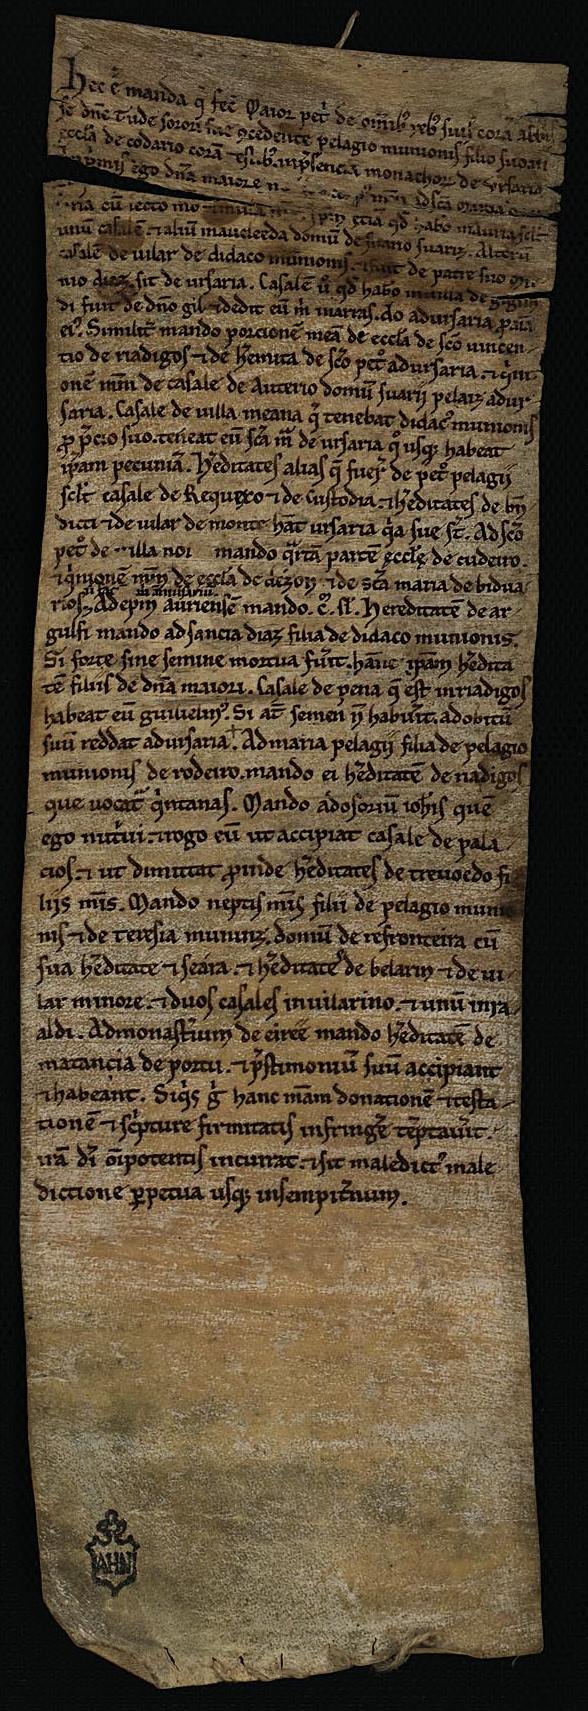 Hec ē manda q̄ fec̄ Maior pet̉ de om̄ib; reb; suis corā abb̄is
se dn̄e Tude sorori sue ꝯcedente pelagio munionis filio suo an
eccl̄a de codario corā p̄sencia monachoꝝ de ursaria
In primis ego dn̄a maiore
ria cū lecto mo qd̄ habō
unū casalē. ⁊ aliū domū de suario suariz. Alterū
casalē de uilar de didaco munionis. ⁊ fuit de patre suo
nio diaz. sit de ursaria. Casalē ū qd̄ habō
di fuit de dn̄o gil ⁊ dedit eū m̄ in arras. do ad ursaria p̄ aīa
ei⁹. Similit̄ mando porcionē meā de eccl̄a de sc̄o uincen
tio de riadigos ⁊ de h̄emita de sc̄o pet̉ ad ursaria. ⁊ q̄ni
onē mm̄ de casale de Auterio domū suarii pelaiz ad ur
saria. Casale de uilla meana q̄ tenebat didac⁹ munionis
ꝓ p̄cio suo. teneat eū sc̄a m̄ de ursaria q⁰ usq; habeat
ip̄am pecuniā. H̄editates alias q̄ fuer̄ de pet̉ pelagii
scl̄t casale de Requeixo ⁊ de Custodia. ⁊ h̄editates de bn̄
dicti ⁊ de uilar de monte hāt ursaria q̄a sue st̄. Ad sc̄o
pet̉ de illa noi mando q̄rtā partē eccl̄ę de cudeiro.
⁊ q̄nionē mm̄ de eccl̄a de ⁊ de sc̄a maria de bidua
rios. Ad ep̄m auriensē mando. c̄. sl̄. Hereditatē de ar
gulfi mando ad sancia diaz filia de didaco munionis.
Si forte sine semine mortua fuīt. hanc ip̄am h̄edita
tē filiis de dn̄a maiori. Casale de pena q̄ est in riadigos
habeat eū guilielm⁹. Si at̄ semen n̄ habuīt. ad obitū
suū reddat ad ursaria. Ad maria pelagii filia de pelagio
munionis de rodeiro. mando ei h̄editatē de riadigos
que uocat̄ q̄ntanas. Mando ad osoriū ioh̄is quē
ego nut̄ui. ⁊ rogo eū ut accipiat casale de pala
cios. ⁊ ut dimittat ꝓinde h̄editates de treuoedo fi
liis m̄is. Mando neptis m̄is filii de pelagio munio
nis ⁊ de teresia muniniz. domū de refronteira cū
sua h̄editate ⁊ seara. ⁊ h̄editate de belarin ⁊ de ui
lar minore. ⁊ duos casales in uilarino. ⁊ unū in ra
aldi. Ad monast̄ium de eiree mando h̄editatē de
matancia de portu. ⁊ p̄stimoniū suū accipiant
⁊ habeant. Siq̄s g̊ hanc mām donationē ⁊ testa
tionē ⁊ sc̄pture firmitatis infringe᷑ tēptauīt.
irā dī om̄ipotentis incurrat. ⁊ sit maledict⁹ male
dictione ꝑpetua usq; in sempit̄num.
AHN